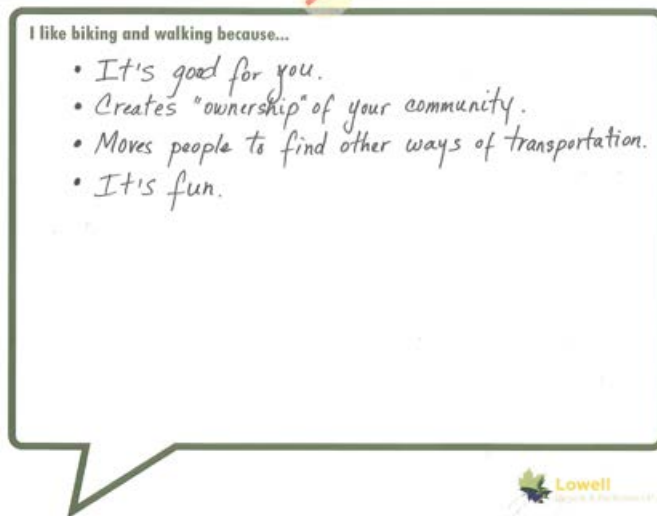 I like biking and walking because...
• It's good for you.
• Creates "ownership" of your community.
• Moves people to find other ways of transportation.
• It's fun.
Lowell